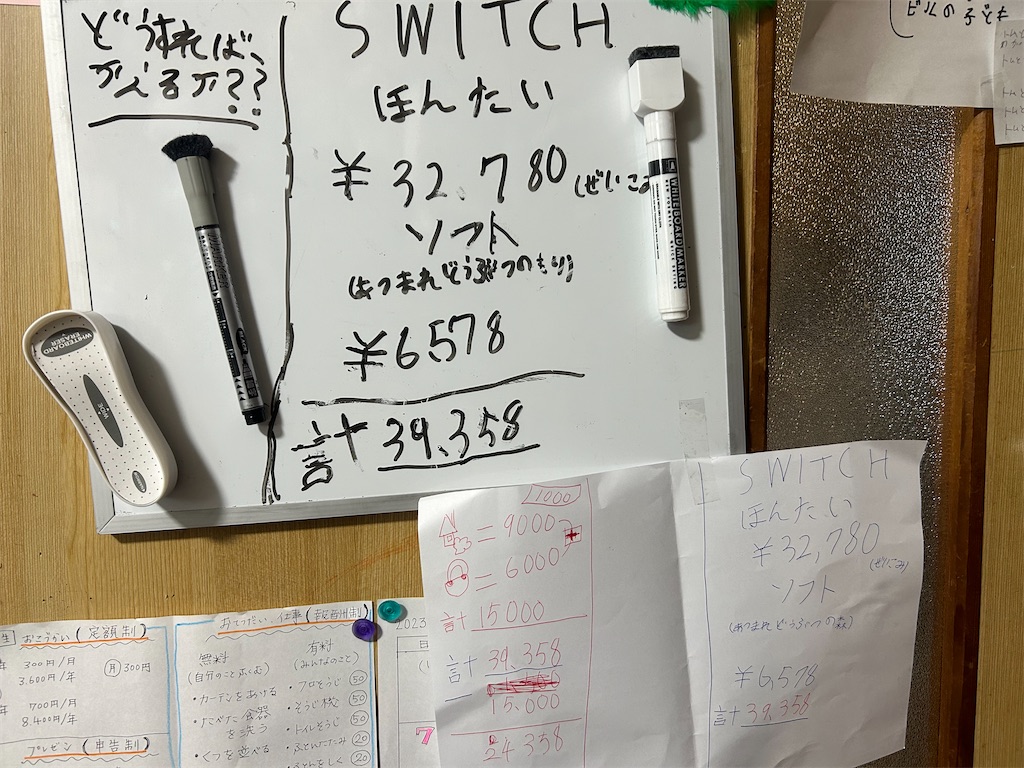 どうすれば、
かえるか??
SWITCH
ほんたい
¥32.780(ぜいこみ
ソフト
(あつまれどうぶつのもり)
¥6578
計 39.358
WHITEBOARD
ERASER
WHITEBOARD MARKER
ビルの子ども
1000
= 9000
= 6000
計 15000
計 39.358
15.000
24 358
SWITCH
ほんたい
¥32,780
(ぜいこみ)
ソフト
(あつまれどうぶつの森)
¥6,578
計 39.358
おこづかい(定額制)
300円/月
3.600円/年
月 300円
700円/月
8.400円/年
プレゼン(申告制)
おてつだい・仕事(報酬制)
無料
(自分のことふくむ)
・カーテンをあける
・たべた食器
を洗う
・くつを並べる
有料
(みんなのこと)
・フロそうじ 50
・そうじ機 50
・トイレそうじ 50
・ふとんたたみ 20
・ふとんをしく 20
2023
日